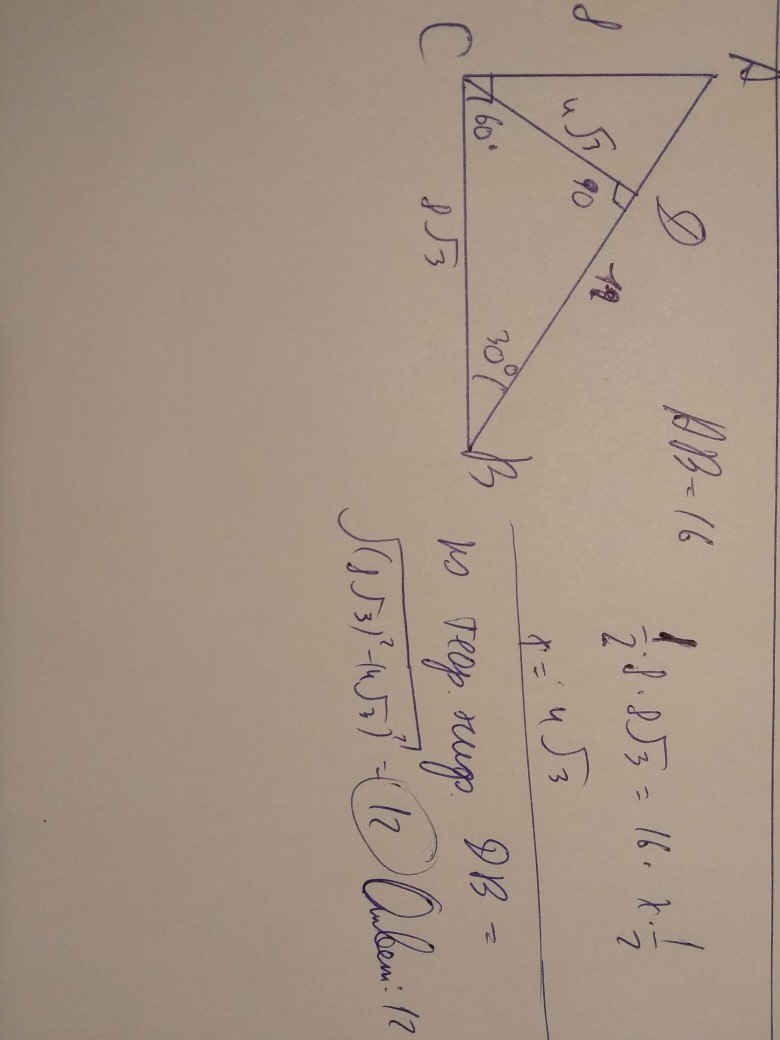 A
8
C
4√3
60°
90
D
12
8√3
30°
B
AB = 16
1/2 · 8 · 8√3 = 16 · x · 1/2
x = 4√3
из теор. пифа. DB =
√(8√3)² - (4√3)² = 12
Ответ: 12